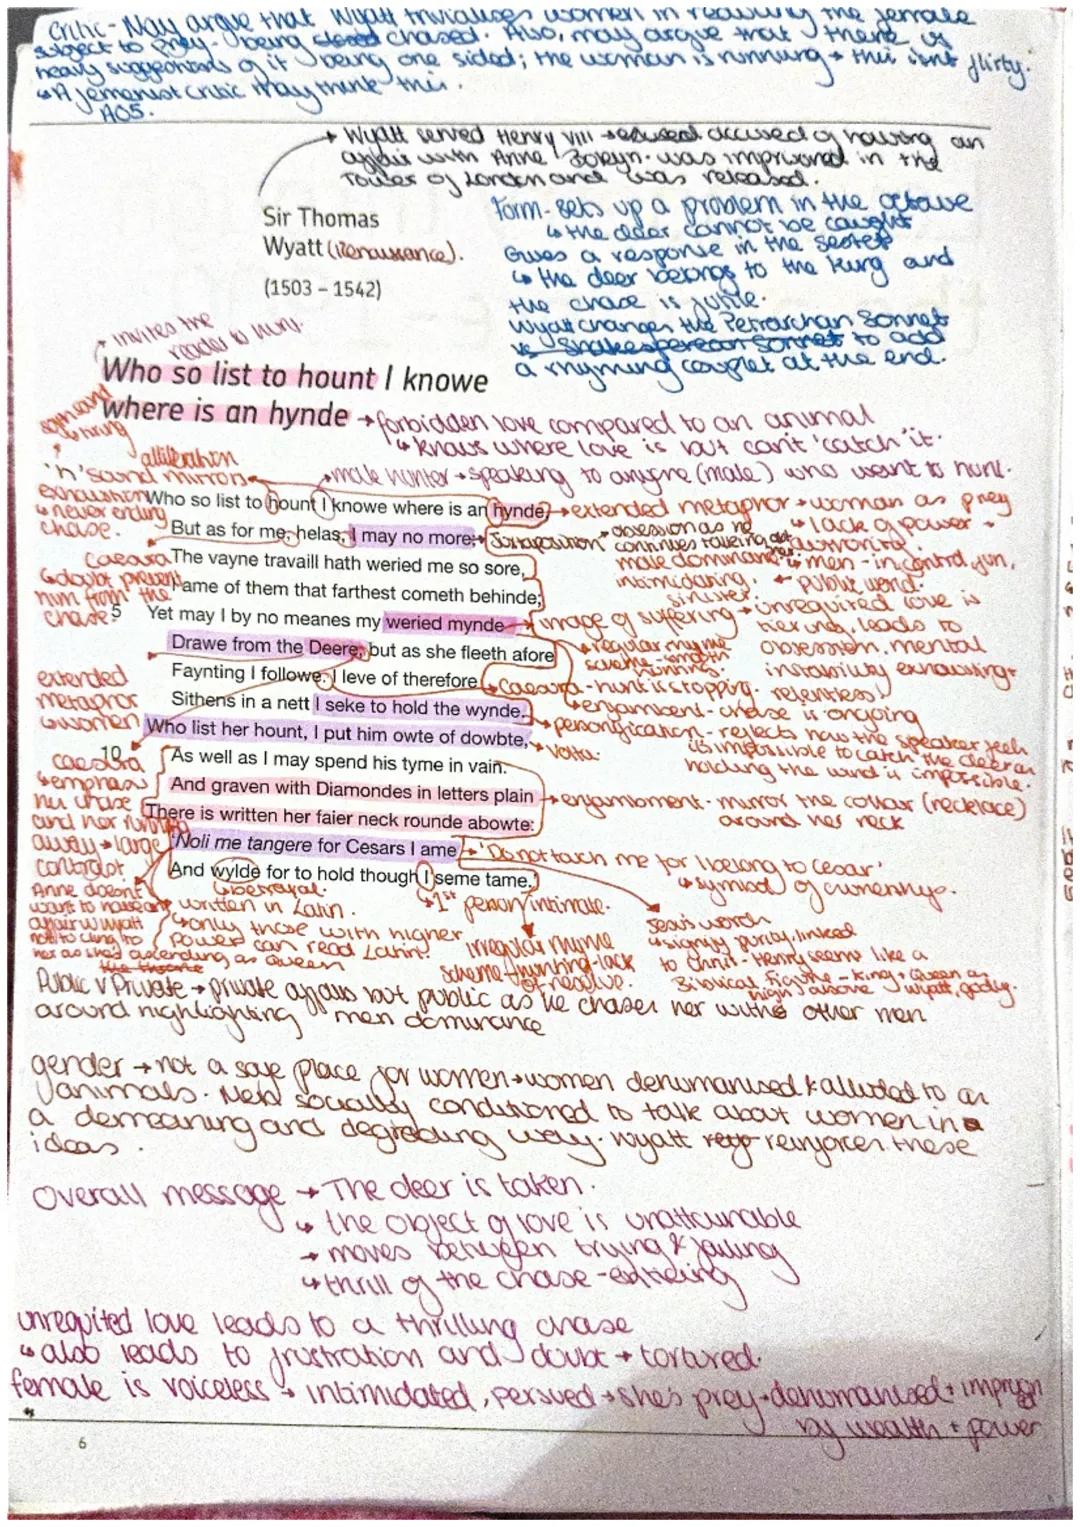 Critic - May argue that Wyatt trivialises women in reducing the female
subject to prey - being chased. Also, may argue that there is
heavy suggestions of it being one sided; the woman is running → this isn't flirty.
↳ A femenist critic may think this.
AO5.
→ Wyatt served Henry VIII → accused of having an
affair with Anne Boleyn. was imprisoned in the
Tower of London and was released.
Sir Thomas
Wyatt (Renaissance).
(1503 – 1542)
Form - sets up a problem in the octave
↳ the deer cannot be caught
Gives a response in the sestet
↳ the deer belongs to the King and
the chase is futile.
Wyatt changes the Petrarchan Sonnet
vs Shakesperean sonnet to add
a rhyming couplet at the end.
invites the
reader to hunt.
Who so list to hount I knowe
where is an hynde
→ forbidden love compared to an animal
↳ knows where love is but can't 'catch' it.
alliteration
'h' sound mirrors
exhaustion
↳ never ending
chase.
→ male hunter → speaking to anyone (male) who want to hunt.
Who so list to hount I knowe where is an hynde,
→ extended metaphor → woman as prey
↳ lack of power +
authority.
But as for me, helas, I may no more:
→ Juxtaposition
obsession as he
continues talking abt
her.
male dominance
↳ men - in control, fun,
intimidating,
sinister.
← public word.
Caesura
↳ doubt prevent
him from the
chase
The vayne travaill hath weried me so sore,
I ame of them that farthest cometh behinde;
5
Yet may I by no meanes my weried mynde
→ image of suffering → unrequired love is
tiering, leads to
obsession, mental
instability, exhausting +
relentless!
Drawe from the Deere, but as she fleeth afore
↳ regular rhyme
scheme - smooth
hunting.
Faynting I followe. I leve of therefore
↳ Caesura - hunt is stopping.
extended
metaphor
↳ women
Sithens in a nett I seke to hold the wynde.
↳ enjambent - chase is ongoing
→ personification - reflects how the speaker feels
its impossible to catch the deer as
holding the wind is impossible.
Who list her hount, I put him owte of dowbte,
→ Volta.
10
As well as I may spend his tyme in vain.
caesura
↳ emphasis
his chase
and her running
away → large
contrast.
And graven with Diamondes in letters plain
→ enjambment - mirror the collar (necklace)
around her neck
There is written her faier neck rounde abowte:
'Noli me tangere for Cesars I ame
→ 'Do not touch me for I belong to Cesar'
↳ symbol of ownership.
And wylde for to hold though I seme tame.'
↳ betrayal.
↳ 1st person, intimate.
Anne doesn't
want to have an
affair w Wyatt
not to cling to
her as she's ascending as Queen
the throne
written in Latin.
↳ only those with higher
power can read Latin!
irregular rhyme
scheme - hunting - lack
of resolve.
Jesus words
↳ signify purity, linked
to Christ - Henry seems like a
Biblical figure - King + Queen are
high above Wyatt, godly.
Public v Private → private affairs but public as he chases her with other men
around highlighting men dominance
gender → not a safe place for women → women dehumanised & alluded to as
animals. Men socially conditioned to talk about women in a
a demeaning and degrading way. Wyatt reinforces these
ideas.
Overall message → The deer is taken.
↳ the object of love is unattainable
→ moves between trying & failing
↳ thrill of the chase - exhilering
unrequited love leads to a thrilling chase
↳ also leads to frustration and doubt → tortured.
female is voiceless → intimidated, persued → she's prey → dehumanised +
by wealth + power
6